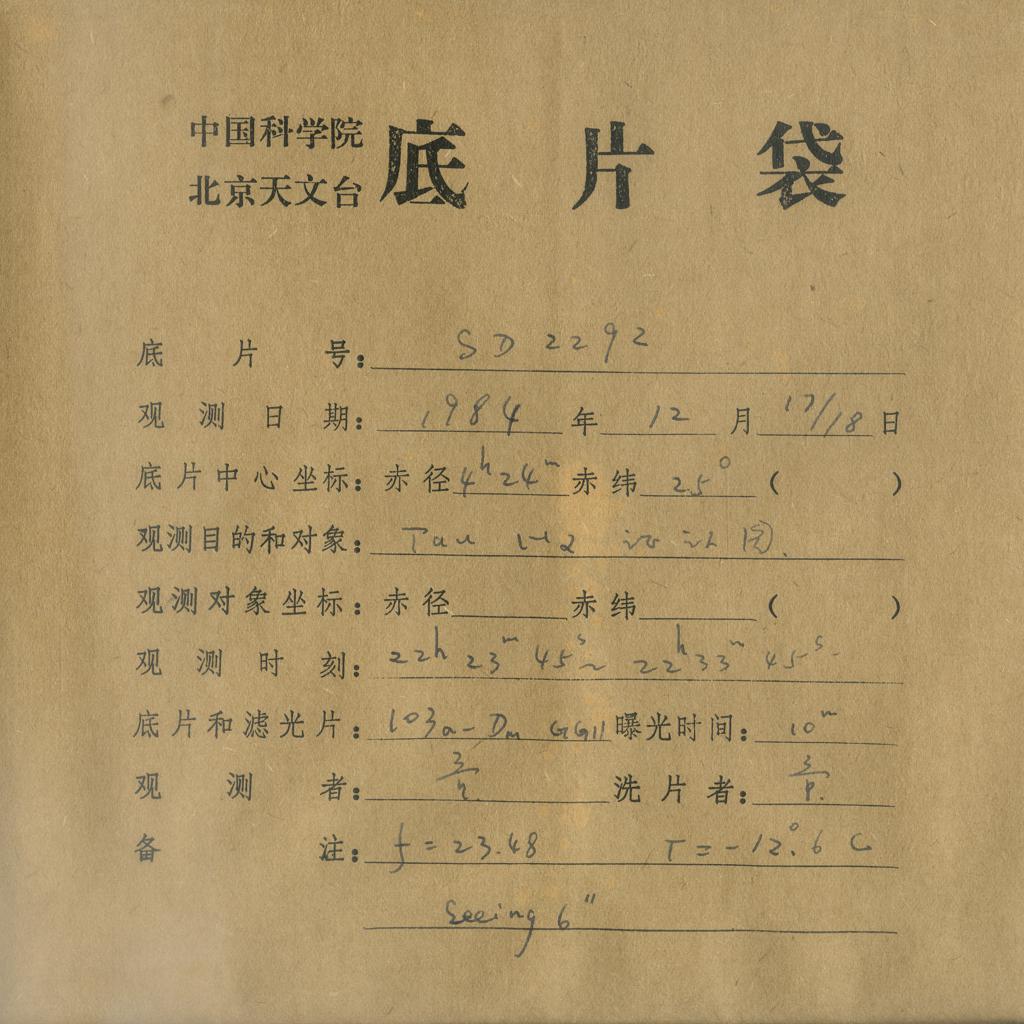 中国科学院
北京天文台
底片袋
底片号: SD 2292
观测日期: 1984 年 12 月 17/18 日
底片中心坐标: 赤径 4h 24m 赤纬 25° ( )
观测目的和对象: Tau 证认图.
观测对象坐标: 赤径 赤纬 ( )
观测时刻: 22h 23m 45s ~ 22h 33m 45s
底片和滤光片: 103a-D GG11 曝光时间: 10m
观测者:
洗片者:
备注: f = 23.48 T = -12°.6 C
Seeing 6"